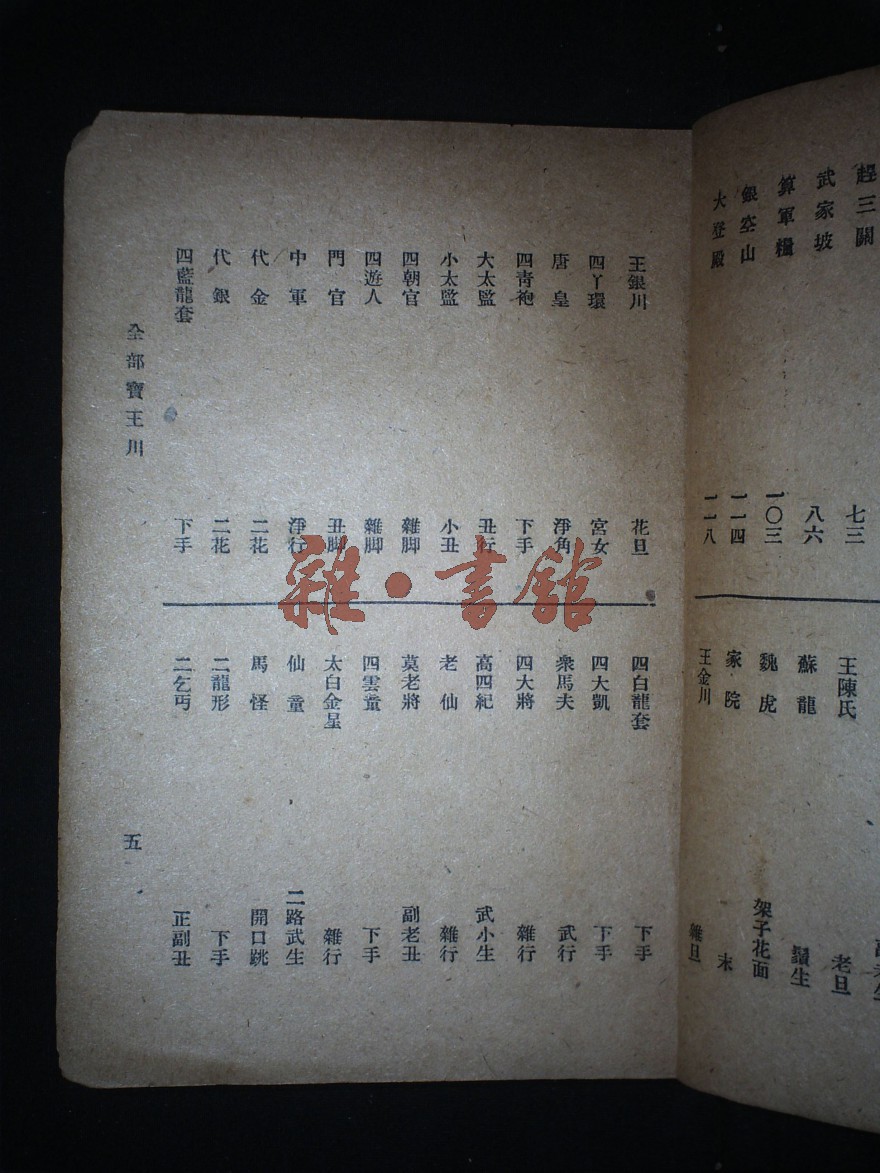 趕三關　七三
武家坡　八六
算軍糧　一〇三
銀空山　一一四
大登殿　一一八
王陳氏　老旦
蘇龍　鬚生
魏虎　架子花面
家院　末
王金川　雜旦
王銀川　花旦
四丫環　宮女
唐皇　淨角
四青袍　下手
大太監　丑行
小太監　小丑
四朝官　雜脚
四遊人　雜脚
門官　丑脚
中軍　淨行
代金　二花
代銀　二花
四藍龍套　下手
四白龍套　下手
四大凱　下手
衆馬夫　武行
四大將　雜行
高四紀　武小生
老仙　雜行
莫老將　副老丑
四雲童　下手
太白金星　雜行
仙童　二路武生
馬怪　開口跳
二龍形　下手
二乞丐　正副丑
全部寶王川
五
雜·書館